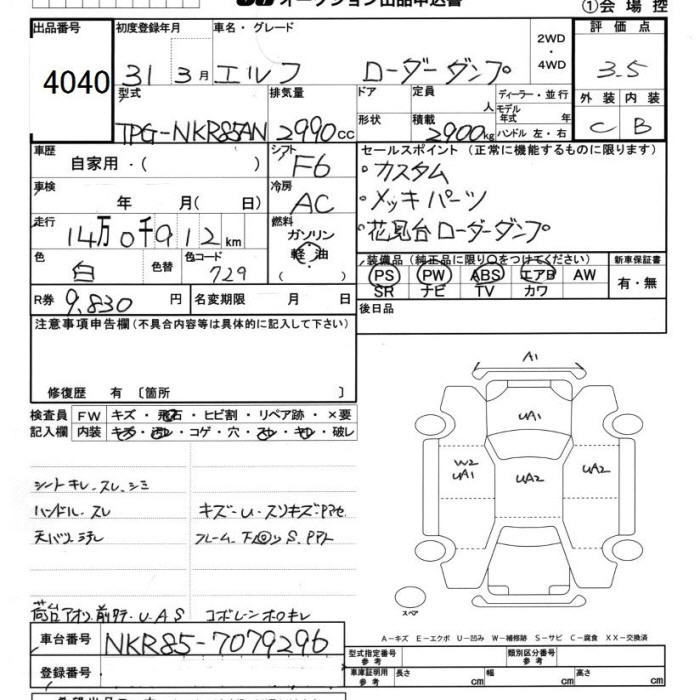 オークション出品申込書
①会場控
出品番号
4040
初度登録年月
31 3月
車名・グレード
エルフ ローダーダンプ
2WD
・
4WD
評価点
3.5
型式
TPG-NKR85AN
排気量
2990cc
ドア
形状
定員
人
積載
2900kg
ディーラー・並行
モデル
年式 年
ハンドル 左・右
外装 内装
C B
車歴
自家用・( )
シフト
F6
車検
年 月( 日)
冷房
AC
走行
14万0千912km
燃料
ガソリン
軽油
( )
色
白
色替
色コード
729
R券 9,830 円
名変期限 月 日
セールスポイント (正常に機能するものに限ります)
・カスタム
・メッキパーツ
・花見台ローダーダンプ
装備品 (純正品に限り○をつけてください)
PS PW ABS エアB AW
SR ナビ TV カワ
新車保証書
有・無
後日品
注意事項申告欄(不具合内容等は具体的に記入して下さい)
修復歴 有 〔箇所 〕
検査員 FW キズ・飛石・ヒビ割・リペア跡・×要
記入欄 内装 キズ・汚レ・コゲ・穴・スレ・キレ・破レ
シートキレ.スレ.シミ
ハンドル.スレ
天バリ汚レ
キズ・U・スリキズ・Pアセ
フレーム.下回りS.Pアト
荷台アオリ前 U.A.S
A1
UA1
W2
UA1
UA2
UA2
スペア
A−キズ E−エクボ U−凹み W−補修跡 S−サビ C−腐食 XX−交換済
車台番号 NKR85-7079296
登録番号
型式指定番号
参考
類別区分番号
参考
車庫証明用
参考
長さ cm 幅 cm 高さ cm